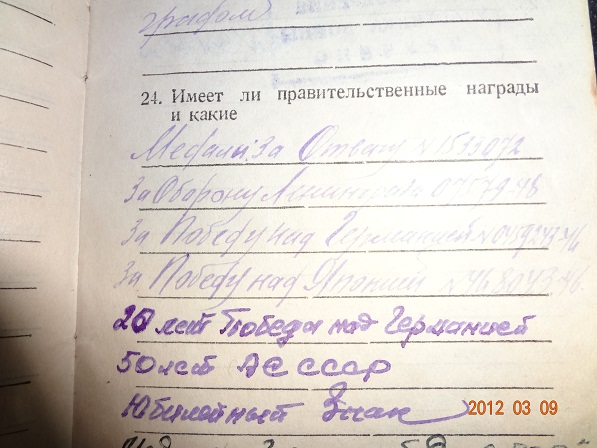 графом
24. Имеет ли правительственные награды
и какие
Медалы: За Отвагу N1535072
За Оборону Ленинграда
За Победу над Германией
За Победу над Японией
20 лет Победы над Германией
50 лет АС СССР
Юбилейный Знак
2012 03 09